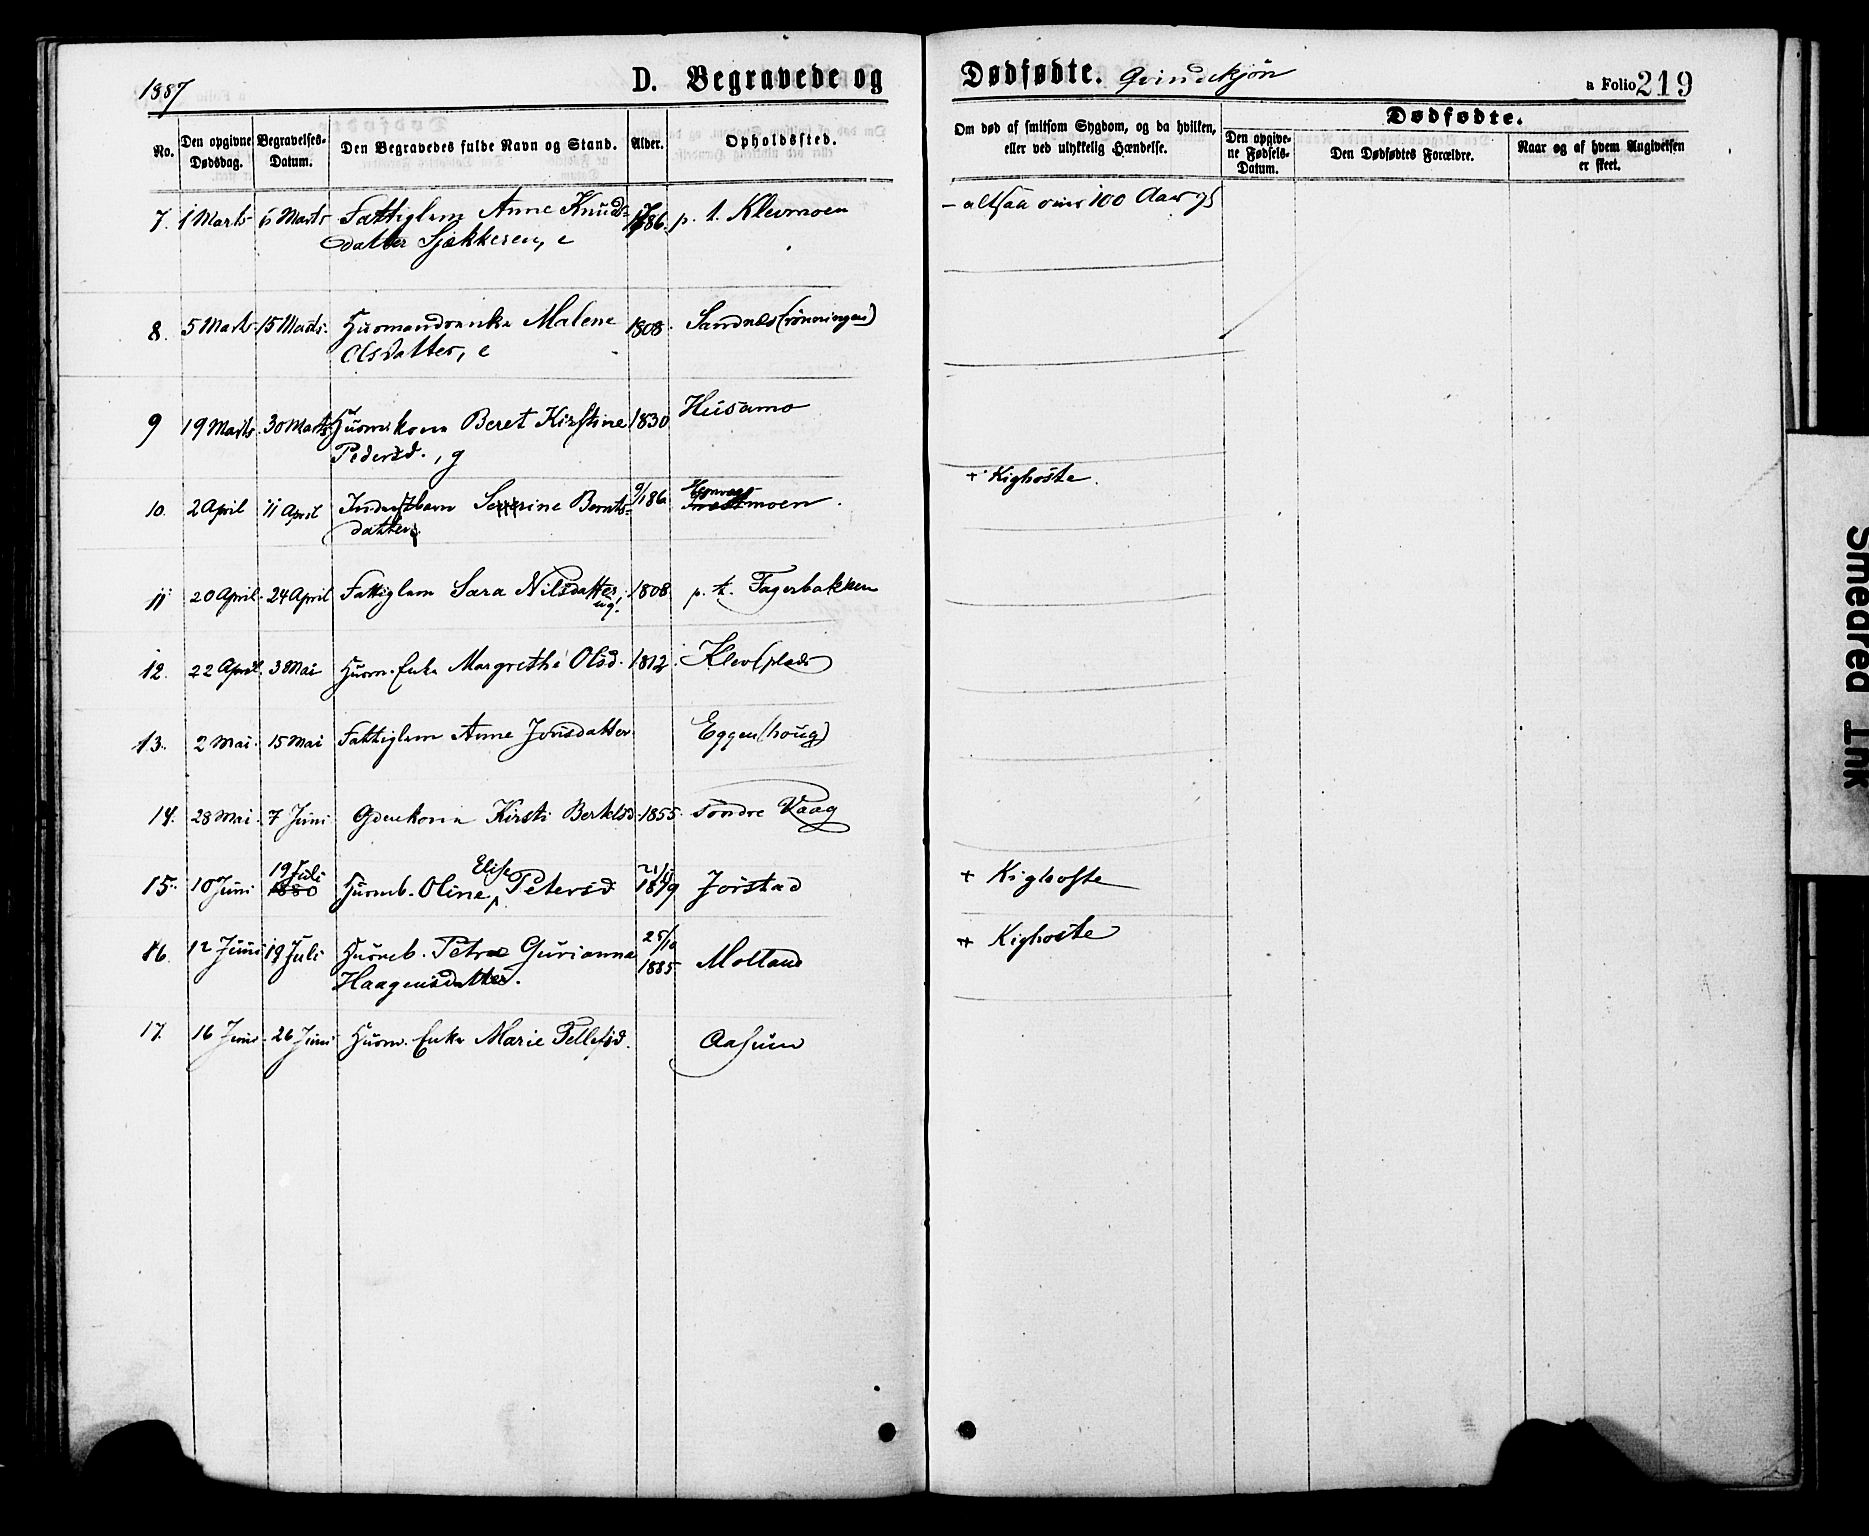 1887
D. Begravede og Dødfødte. Qvindekjøn
a Folio 219
No.
Den opgivne Dødsdag.
Begravelses-Datum.
Den Begravedes fulde Navn og Stand.
Alder.
Opholdssted.
Om død af smitsom Sygdom, og da hvilken,
eller ved ulykkelig Hændelse.
Dødfødte.
Den opgivne Fødsels-Datum.
Den Dødfødtes Forældre.
Naar og af hvem Angivelsen er skeet.
7. 1 Marts 6 Marts Fattiglem Anne Knuds- 1786. p. t. Klevmoen - altsaa over 100 Aar gl
datter Sjækkesen, e
8. 5 Marts 15 Marts. Husmandsenke Malene 1808. Sandnes (rönningen)
Olsdatter, e
9 19 Marts. 30 Marts Husmskone Beret Kirstine 1830 Husamo
Pedersd., g
10. 2 April 11 April Inderstbarn Serine Bernts- moen. + Kighoste.
datter
11 20 April. 24 April Fattiglem Sara Nilsdatter 1808 p. t. Fagerbakken
ug.
12. 22 April. 3 Mai Husm. Enke Margrethe Olsd. 1812. Klev (plads)
13. 2 Mai. 15 Mai Fattiglem Anne Jonsdatter Eggen (houg)
14. 28 Mai. 7 Juni Gdmkone Kirsti Bertelsd. 1855. söndre Vaag
15. 10 Juni 19 Juli Husmb. Oline Elise Petersd 21/11 1879 Jörstad + Kighoste
16. 12 Juni 19 Juli Husmb. Petra Gurianna 25/10 1885 Moland + Kighoste
Haagensdatter.
17. 16 Juni. 26 Juni Husm. Enke Marie Tellefsd. Aasum
Smeared Ink